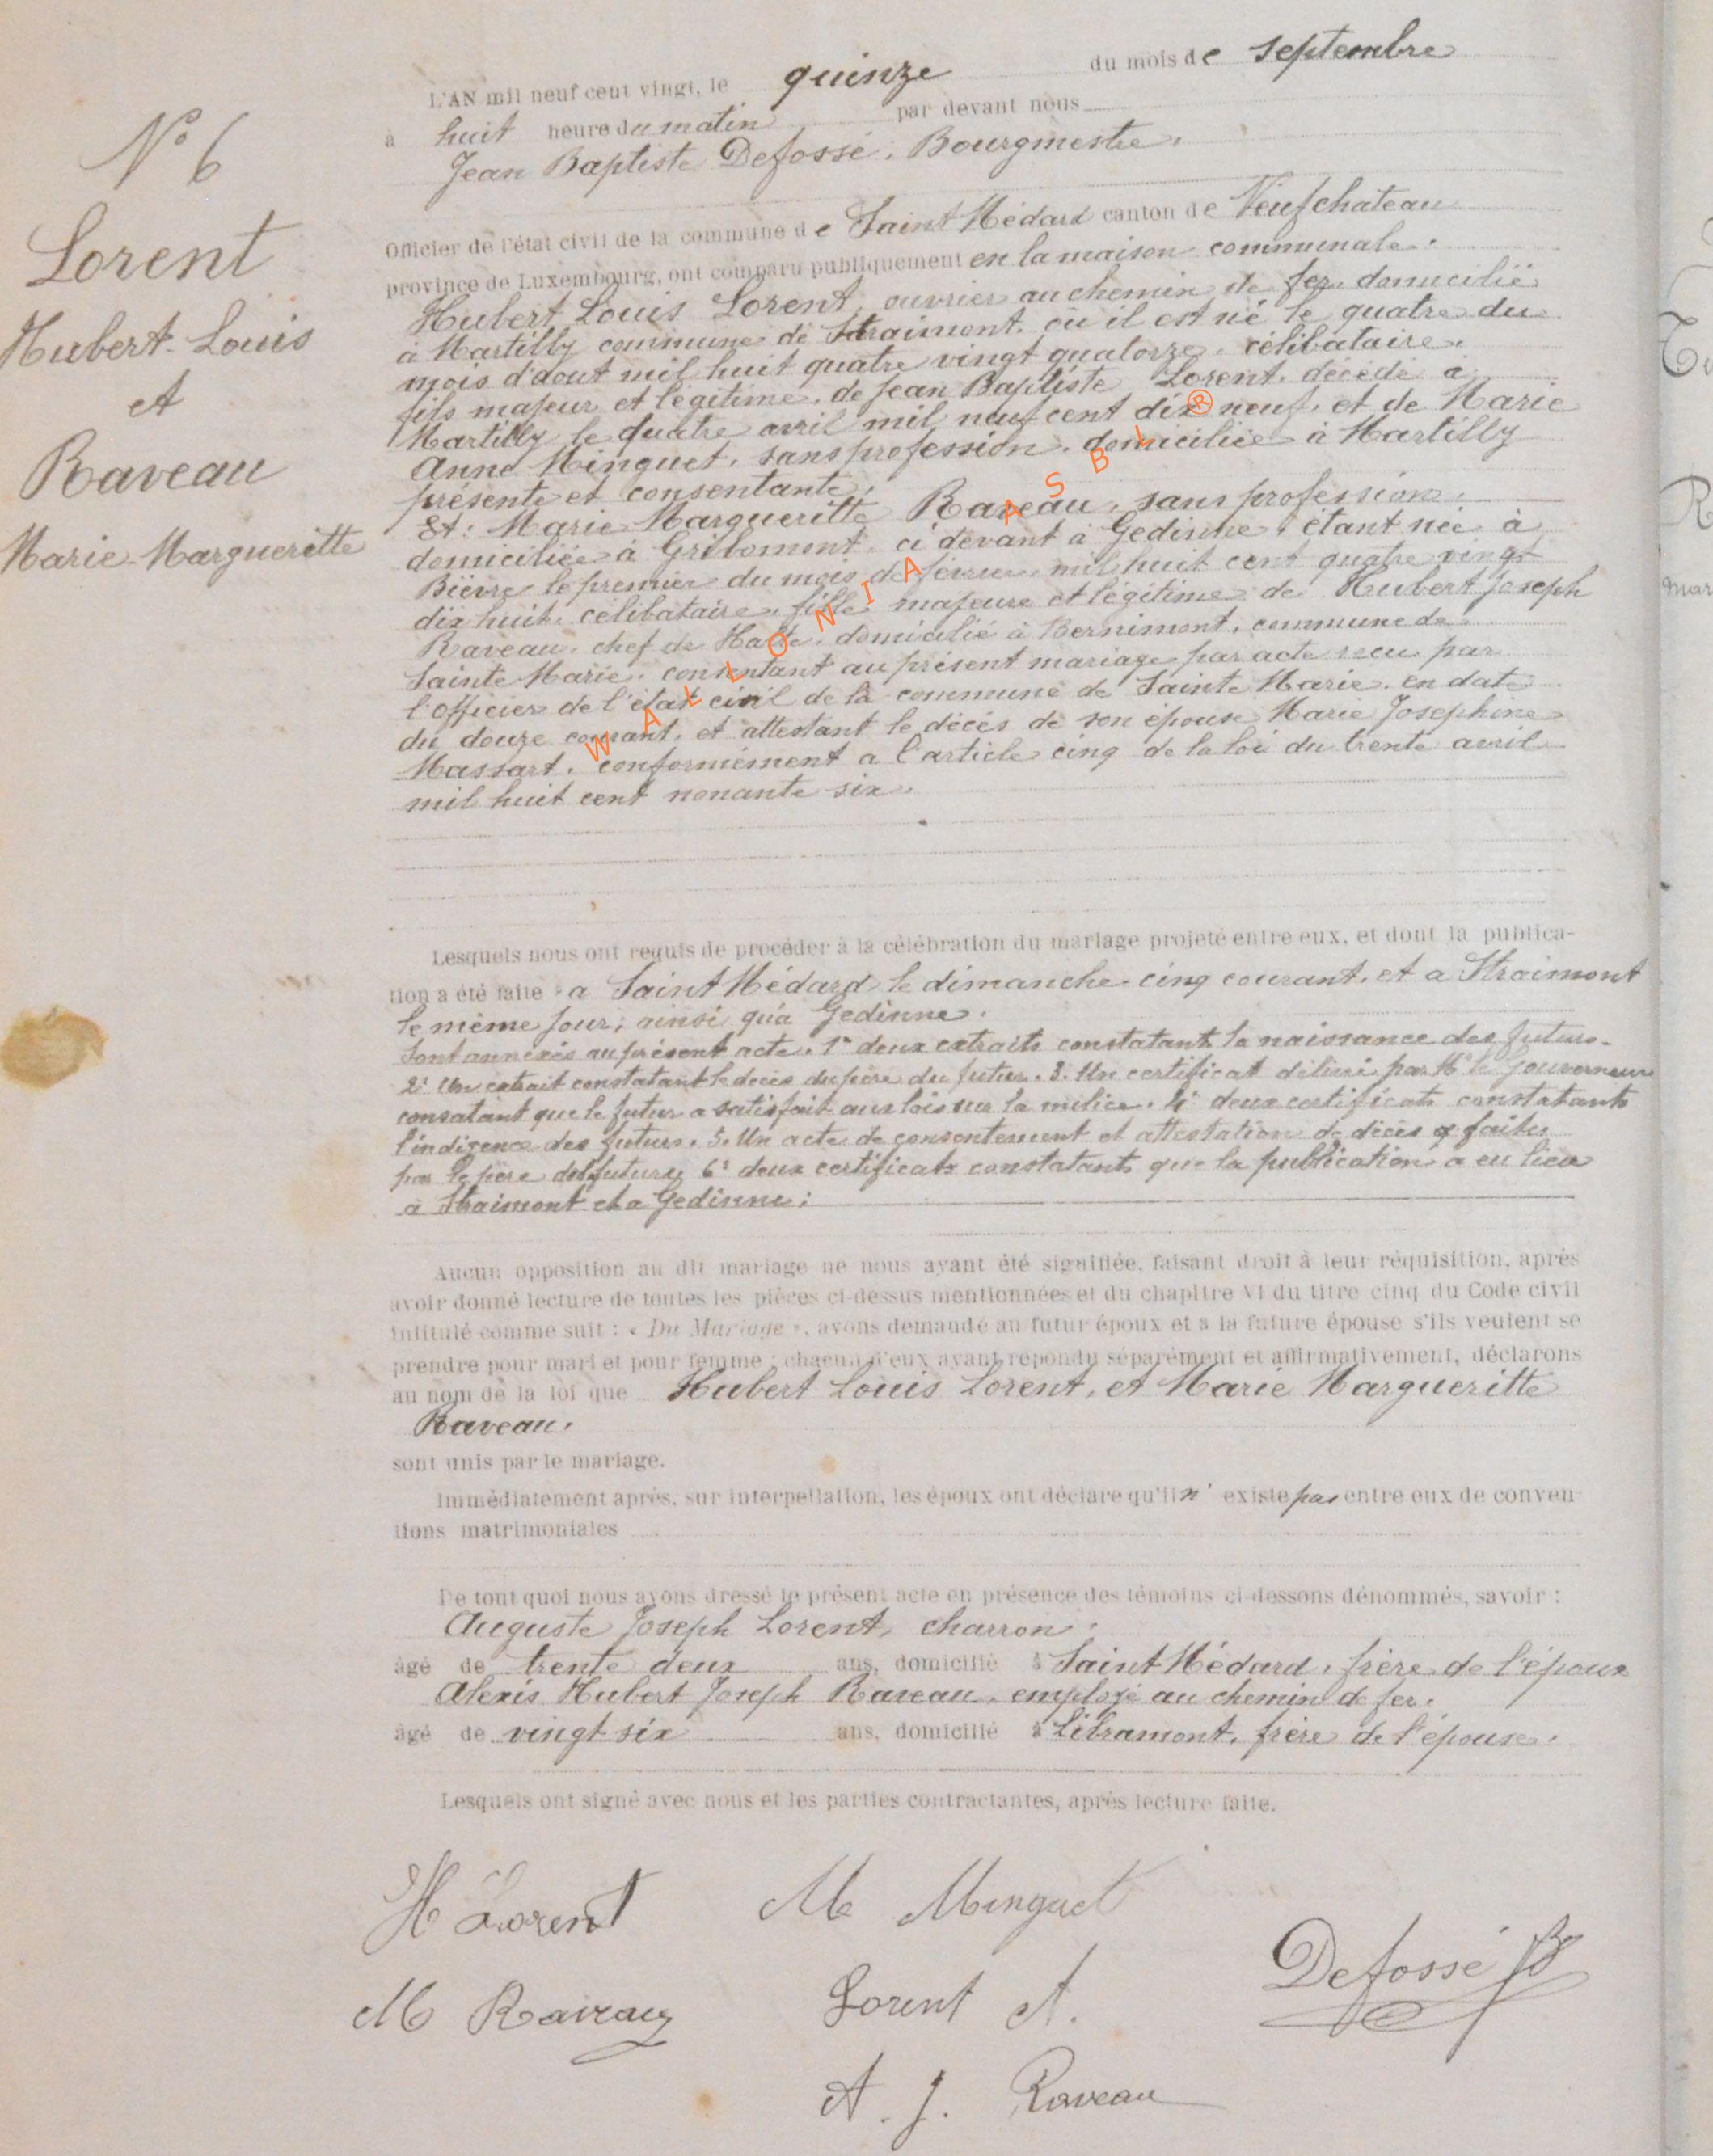 N° 6
Lorent
Hubert-Louis
et
Raveau
Marie-Margueritte
L'AN mil neuf cent vingt, le quinze du mois de septembre
à huit heure du matin par devant nous
Jean Baptiste Defossé, Bourgmestre,
Officier de l'état civil de la commune de Saint Médard canton de Neufchateau
province de Luxembourg, ont comparu publiquement en la maison communale.
Hubert Louis Lorent, ouvrier au chemin de fer, domicilié
à Martilly commune de Straimont, où il est né le quatre du
mois d'août mil huit quatre vingt quatorze, célibataire,
fils majeur et légitime, de Jean Baptiste Lorent, décédé à
Martilly le quatre avril mil neuf cent dix neuf, et de Marie
Anne Minguet, sans profession, domiciliée à Martilly
présente et consentante,
Et: Marie Margueritte Raveau, sans profession,
domiciliée à Gribomont, ci devant à Gedinne, étant née à
Bièvre le premier du mois de février mil huit cent quatre vingt
dix huit, célibataire, fille majeure et légitime de Hubert Joseph
Raveau, chef de Halte, domicilié à Bernimont, commune de
Sainte Marie, consentant au présent mariage par acte recu par
l'officier de l'état civil de la commune de Sainte Marie, en date
du douze courant, et attestant le décès de son épouse Marie Josephine
Massart, conformément a l'article cinq de la loi du trente avril
mil huit cent nonante six.
WALLONIA ASBL ®
Lesquels nous ont requis de procéder à la célébration du mariage projeté entre eux, et dont la publica-
tion a été faite a Saint Médard le dimanche cinq courant, et a Straimont
le même jour, ainsi qu'a Gedinne.
Sont annexés au présent acte. 1° deux extraits constatant la naissance des futurs.
2° Un extrait constatant le décès du père du futur. 3. Un certificat délivré par Mr le Gouverneur
constatant que le futur a satisfait aux lois sur la milice. 4° deux certificats constatants
l'indigence des futurs. 5. Un acte de consentement et attestation de décès faite
par le père de la future 6° deux certificats constatants que la publication a eu lieu
a Straimont et a Gedinne;
Aucun opposition au dit mariage ne nous ayant été signifiée, faisant droit à leur réquisition, après
avoir donné lecture de toutes les pièces ci-dessus mentionnées et du chapitre VI du titre cinq du Code civil
intitulé comme suit : « Du Mariage », avons demandé au futur époux et à la future épouse s'ils veulent se
prendre pour mari et pour femme ; chacun d'eux ayant repondu séparément et affirmativement, déclarons
au nom de la loi que Hubert Louis Lorent, et Marie Margueritte
Raveau,
sont unis par le mariage.
Immédiatement après, sur interpellation, les époux ont déclaré qu'il n' existe pas entre eux de conven-
tions matrimoniales
De tout quoi nous avons dressé le présent acte en présence des témoins ci-dessons dénommés, savoir :
Auguste Joseph Lorent, charron,
âgé de trente deux ans, domicilié à Saint Médard, frère de l'époux
Alexis Hubert Joseph Raveau, employé au chemin de fer,
âgé de vingt six ans, domicilié à Libramont, frère de l'épouse.
Lesquels ont signé avec nous et les parties contractantes, après lecture faite.
H Lorent M Minguet
Defossé JB
M Raveau Lorent A.
A. J. Raveau